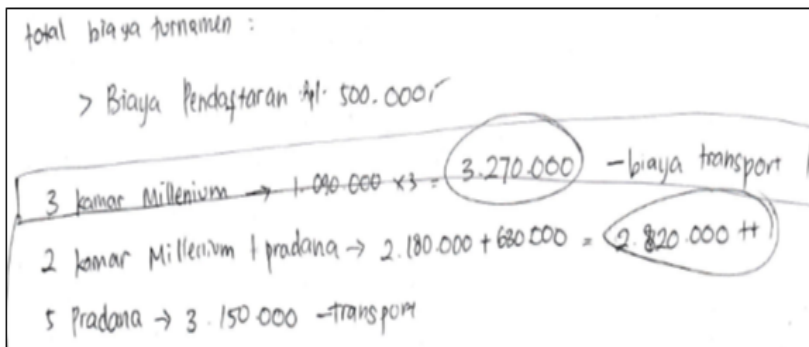 total biaya turnamen :
> Biaya Pendaftaran Rp. 500.000,-
3 kamar Millenium → 1.090.000 x3 = 3.270.000 - biaya transport
2 kamar Millenium + pradana → 2.180.000 + 680.000 = 2.820.000 ++
5 Pradana → 3.150.000 - transport